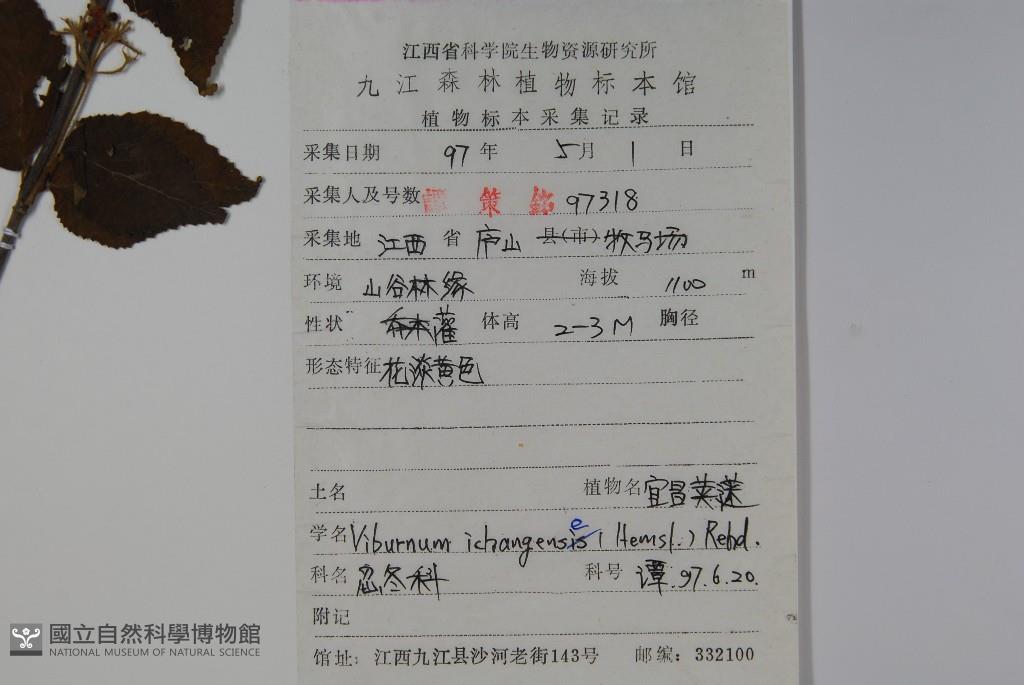 江西省科学院生物资源研究所
九江森林植物标本馆
植物标本采集记录
采集日期 97 年 5月 1 日
采集人及号数 譚策銘 97318
采集地 江西 省 庐山 县(市) 牧马场
环境 山谷林缘 海拔 1100 m
性状 乔木灌 体高 2-3 M 胸径
形态特征 花淡黄色
土名 植物名 宜昌荚蒾
学名 Viburnum ichangensis e (Hemsl.) Rehd.
科名 忍冬科 科号 谭.97.6.20.
附记
馆址: 江西九江县沙河老街143号 邮编: 332100
國立自然科學博物館
NATIONAL MUSEUM OF NATURAL SCIENCE